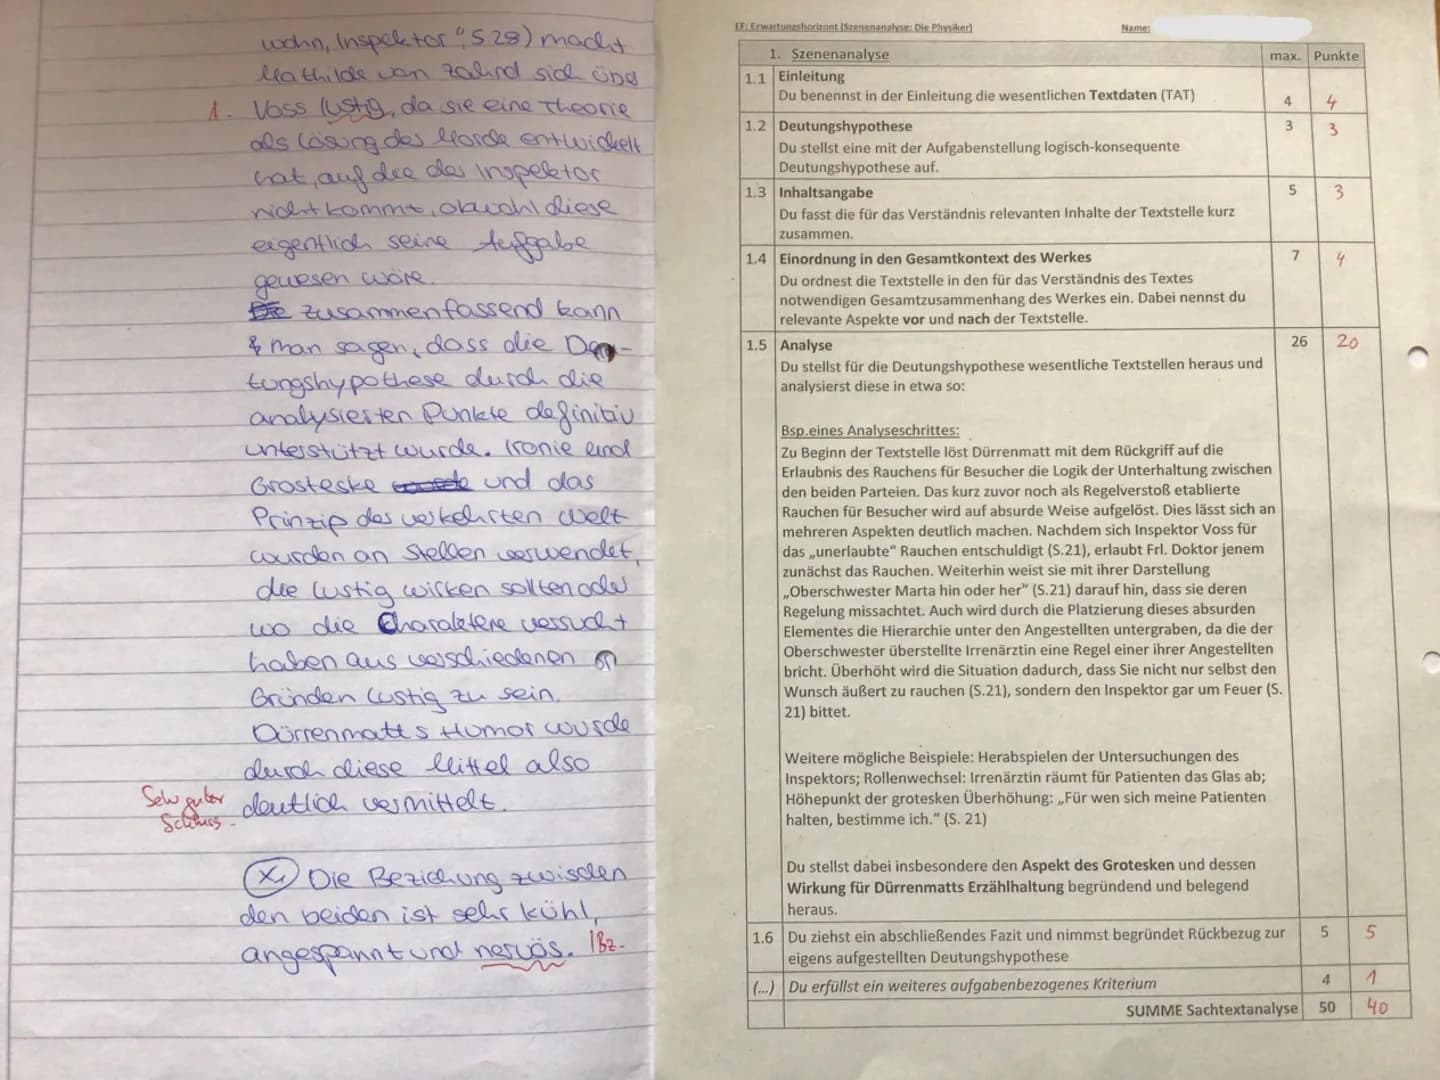 wohn, Inspektor", S.28) macht
Mathilde von Zahnd sich über
1. Voss lustig, da sie eine Theorie
als Lösung des Mords entwickelt
hat, auf die der Inspektor
nicht kommt, obwohl diese
eigentlich seine Aufgabe
gewesen wäre.
Zusammenfassend kann
man sagen, dass die Deu-
tungshypothese durch die
analysierten Punkte definitiv
unterstützt wurde. Ironie und
Grosteske und das
Prinzip der verkehrten Welt
wurden an Stellen verwendet,
die lustig wirken sollten oder
wo die Charaktere versucht
haben aus verschiedenen
Gründen lustig zu sein.
Dürrenmatts Humor wurde
durch diese Mittel also
deutlich vermittelt.
Sehr guter
Schluss.
X1 Die Beziehung zwischen
den beiden ist sehr kühl,
angespannt und nervös. |Bz.
EF: Erwartungshorizont (Szenenanalyse: Die Physiker) Name:
1. Szenenanalyse max. Punkte
1.1 Einleitung
Du benennst in der Einleitung die wesentlichen Textdaten (TAT) 4 4
1.2 Deutungshypothese 3 3
Du stellst eine mit der Aufgabenstellung logisch-konsequente
Deutungshypothese auf.
1.3 Inhaltsangabe 5 3
Du fasst die für das Verständnis relevanten Inhalte der Textstelle kurz
zusammen.
1.4 Einordnung in den Gesamtkontext des Werkes 7 4
Du ordnest die Textstelle in den für das Verständnis des Textes
notwendigen Gesamtzusammenhang des Werkes ein. Dabei nennst du
relevante Aspekte vor und nach der Textstelle.
1.5 Analyse 26 20
Du stellst für die Deutungshypothese wesentliche Textstellen heraus und
analysierst diese in etwa so:
Bsp.eines Analyseschrittes:
Zu Beginn der Textstelle löst Dürrenmatt mit dem Rückgriff auf die
Erlaubnis des Rauchens für Besucher die Logik der Unterhaltung zwischen
den beiden Parteien. Das kurz zuvor noch als Regelverstoß etablierte
Rauchen für Besucher wird auf absurde Weise aufgelöst. Dies lässt sich an
mehreren Aspekten deutlich machen. Nachdem sich Inspektor Voss für
das „unerlaubte“ Rauchen entschuldigt (S.21), erlaubt Frl. Doktor jenem
zunächst das Rauchen. Weiterhin weist sie mit ihrer Darstellung
„Oberschwester Marta hin oder her“ (S.21) darauf hin, dass sie deren
Regelung missachtet. Auch wird durch die Platzierung dieses absurden
Elementes die Hierarchie unter den Angestellten untergraben, da die der
Oberschwester überstellte Irrenärztin eine Regel einer ihrer Angestellten
bricht. Überhöht wird die Situation dadurch, dass Sie nicht nur selbst den
Wunsch äußert zu rauchen (S.21), sondern den Inspektor gar um Feuer (S.
21) bittet.
Weitere mögliche Beispiele: Herabspielen der Untersuchungen des
Inspektors; Rollenwechsel: Irrenärztin räumt für Patienten das Glas ab;
Höhepunkt der grotesken Überhöhung: „Für wen sich meine Patienten
halten, bestimme ich.“ (S. 21)
Du stellst dabei insbesondere den Aspekt des Grotesken und dessen
Wirkung für Dürrenmatts Erzählhaltung begründend und belegend
heraus.
1.6 Du ziehst ein abschließendes Fazit und nimmst begründet Rückbezug zur 5 5
eigens aufgestellten Deutungshypothese
(...) Du erfüllst ein weiteres aufgabenbezogenes Kriterium 4 1
SUMME Sachtextanalyse 50 40